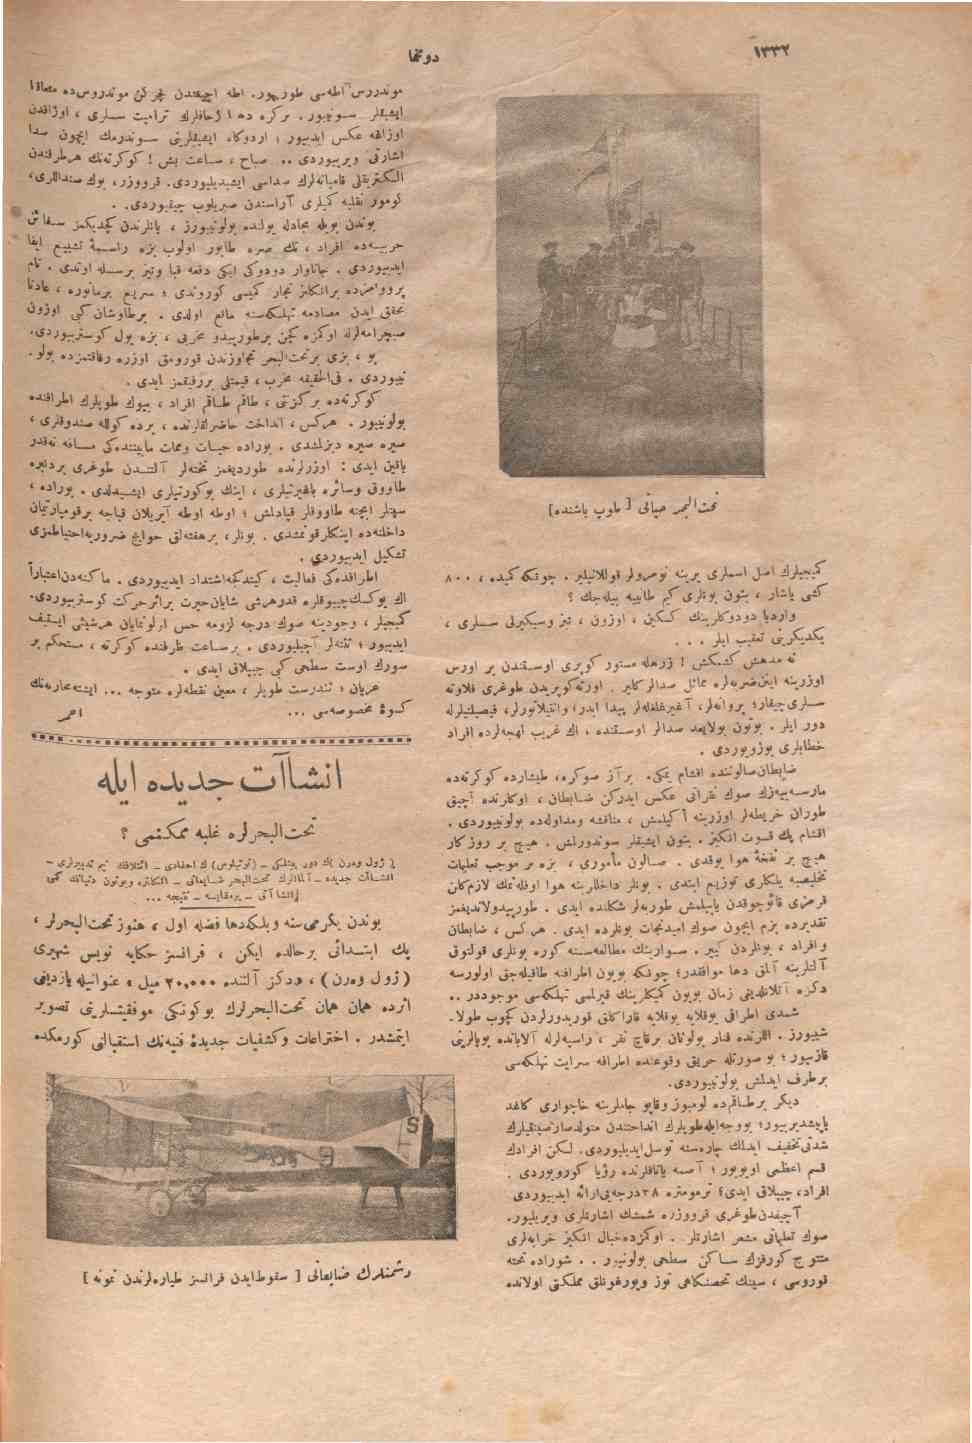 دوتنما
۱۳۳۲
تحت‌البحر حیاتی [ طوپ باشنده]
كمیجیلرك اصل اسملری یرینه نومرولر قوللانیلیر . چونكه كمیده ، ۸۰۰
كشی یاشار ، بتون بونلری كیم طانییه بیله‌جك ؟
واردیا دودوكلرینك كسكین ، اوزون ، تیز وسیكیرلی سسلری ،
یكدیكرینی تعقیب ایلر . . .
نه مدهش كشمكش ! زرهله مستور كوپری اوستندن بر اورس
اوزرینه اینن ضربه‌لره مماثل صدالر كلیر . اورته كوپریدن طوغری فلاوته
سسلری چیقار؛ پروانه‌لر، آغیر غلغله‌لر پیدا ایدر؛
دور ایلر . بوتون بولایعد صدالر اوستنده ، اك غریب لهجه‌لرده افراد
خطابلری بوزویوردی .
ضابطان صالوننده اقشام یمكی. بر آز صوكره، طیشارده كوكرته‌ده
مارسه‌ییه‌زك صوك نقراتی عكس ایدركن ضابطان ، اوكلرنده آچیق
طوران خریطه‌لر اوزرینه أكیلمش ، مناقشه ومداوله‌ده بولونییوردی .
اقشام پك قسوت انكیز. بتون ایشیقلر سوندورلمش . هیچ بر روزكار
هیچ بر نفخهٔ هوا یوقدی . صالون مأموری ، بزه بر موجب تعلیمات
تخلیصیه یلكلری توزیع ایتدی . بونلر داخللرینه هوا اوفله‌نمك لازم كلن
قرمزی قائوچوقدن یاپیلمش طوربه‌لر شكلنده ایدی . طورپیدولاندیغمز
تقدیرده بزم ایچون صوك امید نجات بونلرده ایدی . هركس ، ضابطان
وافراد ، بونلردن كییر . سوارینك مطالعه‌سنه كوره بونلری قولتوق
آلتلرینه آلمق دها موافقدر؛ چونكه بویون اطرافنه طاقیله‌جق اولورسه
دكزه آتلانلدیغی زمان بویون كمیكلرینك قیرلمسی تهلكه‌سی موجوددر ..
شمدی اطرافی یوقلایه یوقلایه قاراكلق قوریدورلردن كچوب طولا-
شییورز . اللرنده فنار بولونان برقاچ نفر ، راسپه‌لرله آلاباندە بویالرینی
قازییور ؛ بو صورتله حریق وقوعنده اطرافه سرایت تهلكه‌سی
برطرف ایدلمش بولونییوردی.
دیكر برطاقم‌ده لومبوز وقاپو جاملرینه خاچواری كاغد
یاپیشدیرییور؛ بووجه‌ایله طوپلرك انداختندن متولد صارصینتیلرك
شدتنی تخفیف ایدلك چاره‌سنه توسل ایدیلیوردی. لكن افرادك
قسم اعظمی اویویور ؛ آصمه یاتاقلرنده رؤیا كورویوردی .
افراد، چیپلاق ایدی؛ ترمومتره ۳۸ درجه‌یی ارائه ایدییوردی
آچیقدن طوغری قرووزره شمشك اشارتلری ویریلیور.
صوك تعلیماتی مشعر اشارتلر . اوكمزده خیال انكیز خرابه‌لری
متوج كورفزك ساكن سطحی بولونییور . . شوراده تحته
قوروسی ، سینك تحصنكاهی توز ویورغونلق مملكتی اولان‌ده
موندروس آطه‌سی طورییور. اطه آچیغندن كچركن موندروس‌ده متعاقباً
ایشیقلر سونییور . بركره دها ترامپت سسلری ، اوزاقدن
اوزاغه عكس ایدییور ؛ اردوكاه ایشیقلرینی سوندرمك ایچون صدا
اشارتی ویرییوردی .. صباح ، ساعت بش ! كوكرته‌نك هرطرفندن
الكتریقلی قامپانه‌لرك صداسی ایشیدیلیوردی. قرووزر، بوك صنداللری،
كومور نقلیه كمیلری آراسندن صیریلوب چیقییوردی. .
بوندن بویله مجادله یولنده بولونییورز ، یانلرندن كچدیكمز سفائن
حربیه‌ده افراد ، تك صره طابور اولوب بزه راسمهٔ تشییع ایفا
ایدییوردی . جاناوار دودوكی ایكی دفعه قبا وتیز برسسله اوتدی . تام
پروواهمزده برانكلیز تجار كمیسی كوروندی ؛ سریع برمانوره ، عادتا
تحقق ایدن مصادمه تهلكه‌سنه مانع اولدی . برطاوشان كبی اوزون
صیچرامه‌لرله اوكمزه كچن برطورپیدو مخربی ، بزه یول كوسترییوردی.
بو ، بزی برتحت‌البحر تجاوزندن قورومق اوزره رفاقتمزده بولو-
نییوردی . فی‌الحقیقه مخرب ، قیمتلی بررفیقمز ایدی .
كوكرته‌ده بر كزنتی ، طاقم طاقم افراد ، بیوك طوپلرك اطرافنده
بولونییور. هركس ، انداخت حاضرلقلرنده ، برده كولله صندوقلری ،
صیره صیره دیزلمشدی . بوراده حیات وممات مابیننده‌كی مسافه نه‌قدر
یاقین ایدی : اوزرلرنده طوردیغمز تخته‌لر آلتندن طوغری بردنبره
طاووق وسائره باغیرتیلری ، اینك بوكورتیلری ایشیدلدی . بوراده ،
سپتلر ایچنه طاووقلر قپادلمش ؛ اوطه اوطه آیریلان قباجه برقومپارتیمان
داخلنده اینكلر قونمشدی . بونلر، برهفته‌لق حوایج ضروریه احتیاطمزی
تشكیل ایدییوردی .
اطرافده‌كی فعالیت ، كیتدكجه اشتداد ایدییوردی. ماكنه‌دن اعتباراً
اك یوكسك چیبوقلره قدر هرشی شایان حیرت برأثر حركت كوسترییوردی.
كمیجیلر ، وجودینه صوك درجه لزومه حس اولونمایان هرشیئی ایستیف
ایدییور ؛ تنته‌لر آچیلیوردی . برساعت ظرفنده كوكرته ، مستحكم بر
سورك اوست سطحی كبی چیپلاق ایدی .
عریان ؛ تندرست طوپلر ، معین نقطه‌لره متوجه ... ایشته محاربه‌نك
كسوهٔ مخصوصه‌سی ...
احمر
انشاآت جدیده ایله
تحت‌البحرلره غلبه ممكنمی ؟
بوندن یكرمی‌سنه وبلكه‌دها فضله اول ، هنوز تحت‌البحرلر ،
پك ابتدائی برحالده ایكن ، فرانسز حكایه نویس شهیری
(ژول وه‌رن ) ، «دكز آلتنده ۲۰,۰۰۰ میل » عنوانیله یازدیغی
اثرده همان همان تحت‌البحرلرك بوكونكی موفقیتلرینی تصویر
ایتمشدر . اختراعات وكشفیات جدیدهٔ فنیه‌نك استقبالنی كورمكده
دشمنلرك ضایعاتی [ سقوط ایدن فرانسز طیاره‌لرندن نمونه ]